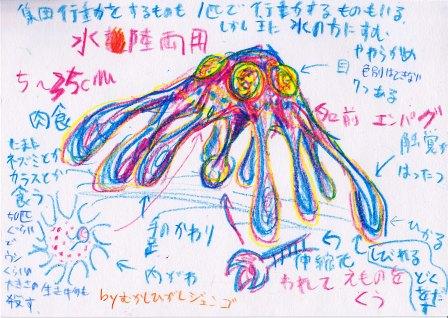 集団行動かとするものも 1匹で行動かするものもいる。
しかし 主に 水の方にすむ
水陸両用
5〜35cm
やわらかめ
目
色別はできない
7つある
名前 エンバグ
肉食
たまに
ネズミとか
カラスとか
食う
触覚が
はったつ
50匹
ぐらい
で
ウシ
ぐらいの
大きさの生き物も
殺す。
手のかわり
内がわ
ひかる
しびれる
どくをだす
伸縮
われて えものを
くう
byむかしひがしジェンゴ